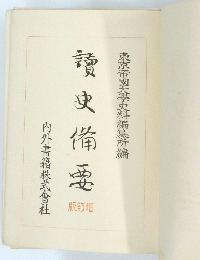 東京帝國大學史料編纂所編
讀史備要
内外書籍株式會社